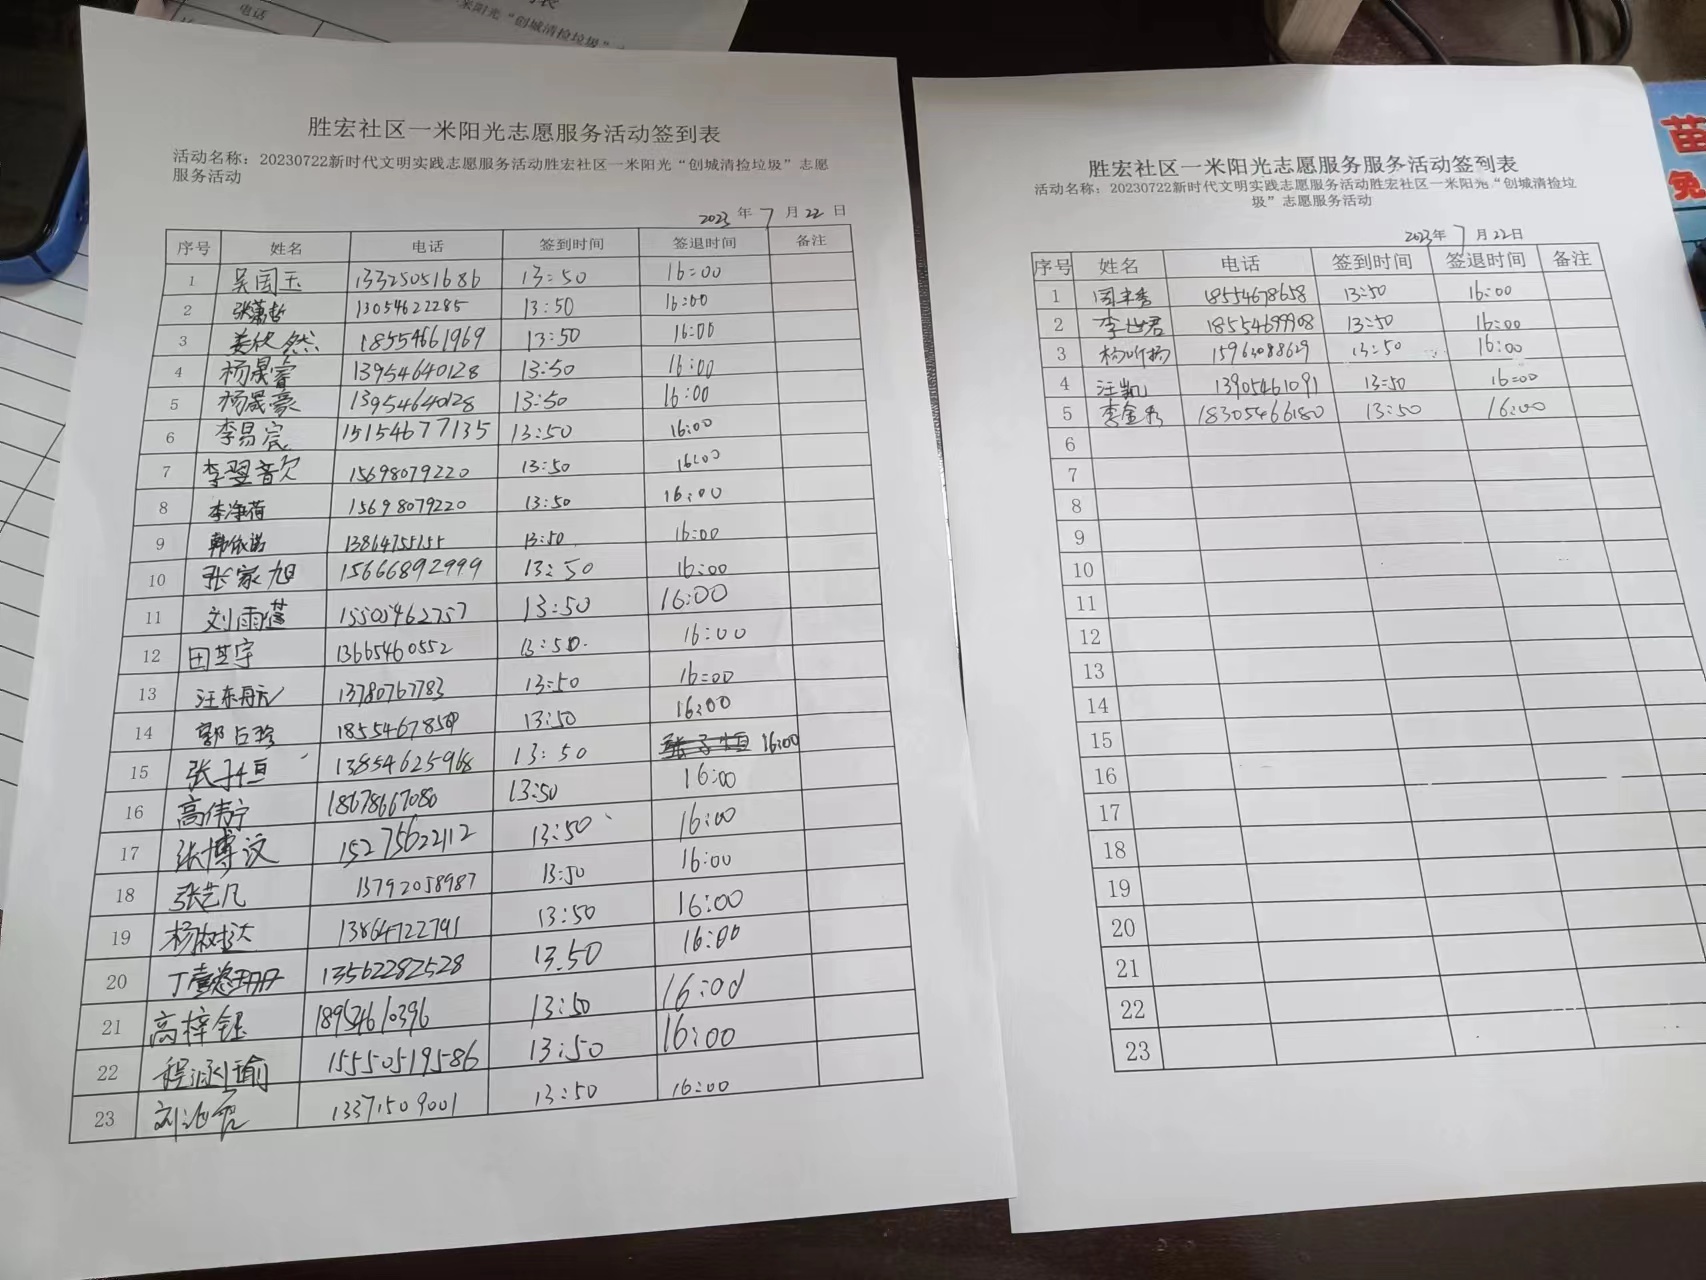 电话
米阳光“创城清捡垃圾”
胜宏社区一米阳光志愿服务活动签到表
活动名称：20230722新时代文明实践志愿服务活动胜宏社区一米阳光“创城清捡垃圾”志愿
服务活动
2023年7月22日
序号 姓名 电话 签到时间 签退时间 备注
1 吴国玉 13325051686 13:50 16:00
2 张萧哲 13054622285 13:50 16:00
3 姜依然 18554661969 13:50 16:00
4 杨晟睿 13954640128 13:50 16:00
5 杨晟豪 13954640128 13:50 16:00
6 李易宸 15154677135 13:50 16:00
7 李翌歆 15698079220 13:50 16:00
8 李净荷 15698079220 13:50 16:00
9 韩依诺 13864755155 13:50 16:00
10 张家旭 15666892999 13:50 16:00
11 刘雨蓓 15505462757 13:50 16:00
12 田芝宇 13665460552 13:50 16:00
13 汪东航 13780767783 13:50 16:00
14 郭占珍 13:50 16:00
15 张子恒 13854625968 13:50 张子恒 16:00
16 高伟宁 18678667080 13:50 16:00
17 张博汶 15275622112 13:50 16:00
18 张艺凡 13792058987 13:50 16:00
19 杨淑达 13864722791 13:50 16:00
20 丁 13562282528 13.50 16:00
21 高梓钰 18954610396 13:50 16:00
22 程泳瑜 15550519586 13:50 16:00
23 刘 13371509001 13:50 16:00
胜宏社区一米阳光志愿服务服务活动签到表
活动名称：20230722新时代文明实践志愿服务活动胜宏社区一米阳光“创城清捡垃
圾”志愿服务活动
2023年7月22日
序号 姓名 电话 签到时间 签退时间 备注
1 周丰秀 18554678658 13:50 16:00
2 李世君 18554699908 13:50 16:00
3 杨 扬 15963088629 13:50 16:00
4 汪凯 13905461091 13:50 16:00
5 李金秀 18305466180 13:50 16:00
6
7
8
9
10
11
12
13
14
15
16
17
18
19
20
21
22
23
苗
免